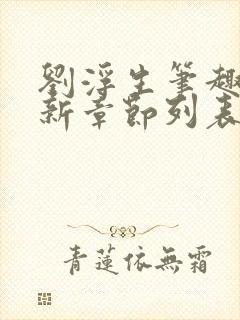 劉浮生筆趣
新章節列表
青蓮依無霜